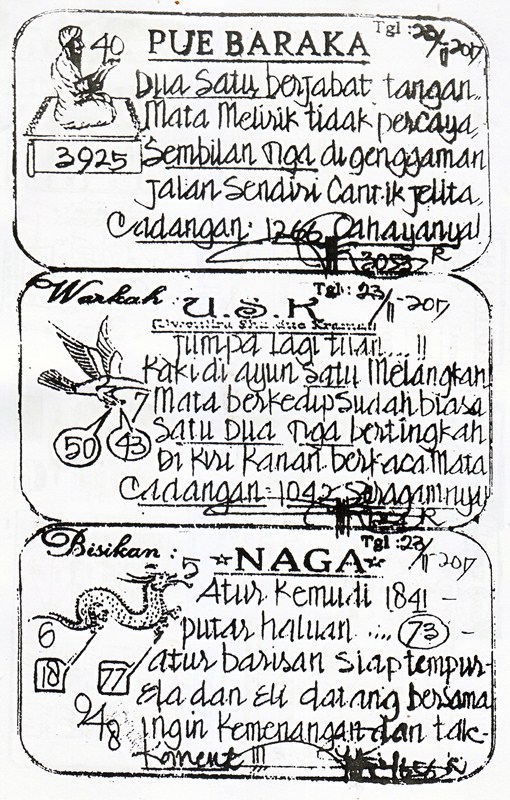 Tgl : 23/11-2017
40
PUE BARAKA
Dua Satu berjabat tangan..
Mata Melirik tidak percaya,
3925
Sembilan Tiga digenggaman
Jalan Sendiri Cantik jelita,
Cadangan: 1266 Cahayanya!
3053 R
Warkah :
U.S.K
Tgl : 23/11-2017
Jumpa Lagi Tuan....!!
Kaki di ayun satu Melangkah
7
Mata berkedip Sudah biasa
50
43
Satu Dua Tiga bertingkah
Di Kiri Kanan berkaca Mata
Cadangan: 1042 Seragamnya
R
Bisikan :
Tgl : 23/11-2017
NAGA
5
Atur Kemudi 1841 -
6
putar haluan .... 73 -
18
77
atur barisan siap tempur-
Ela dan Eli datang bersama
948
Ingin Kemenangan dan tak-
Koment !!!
R